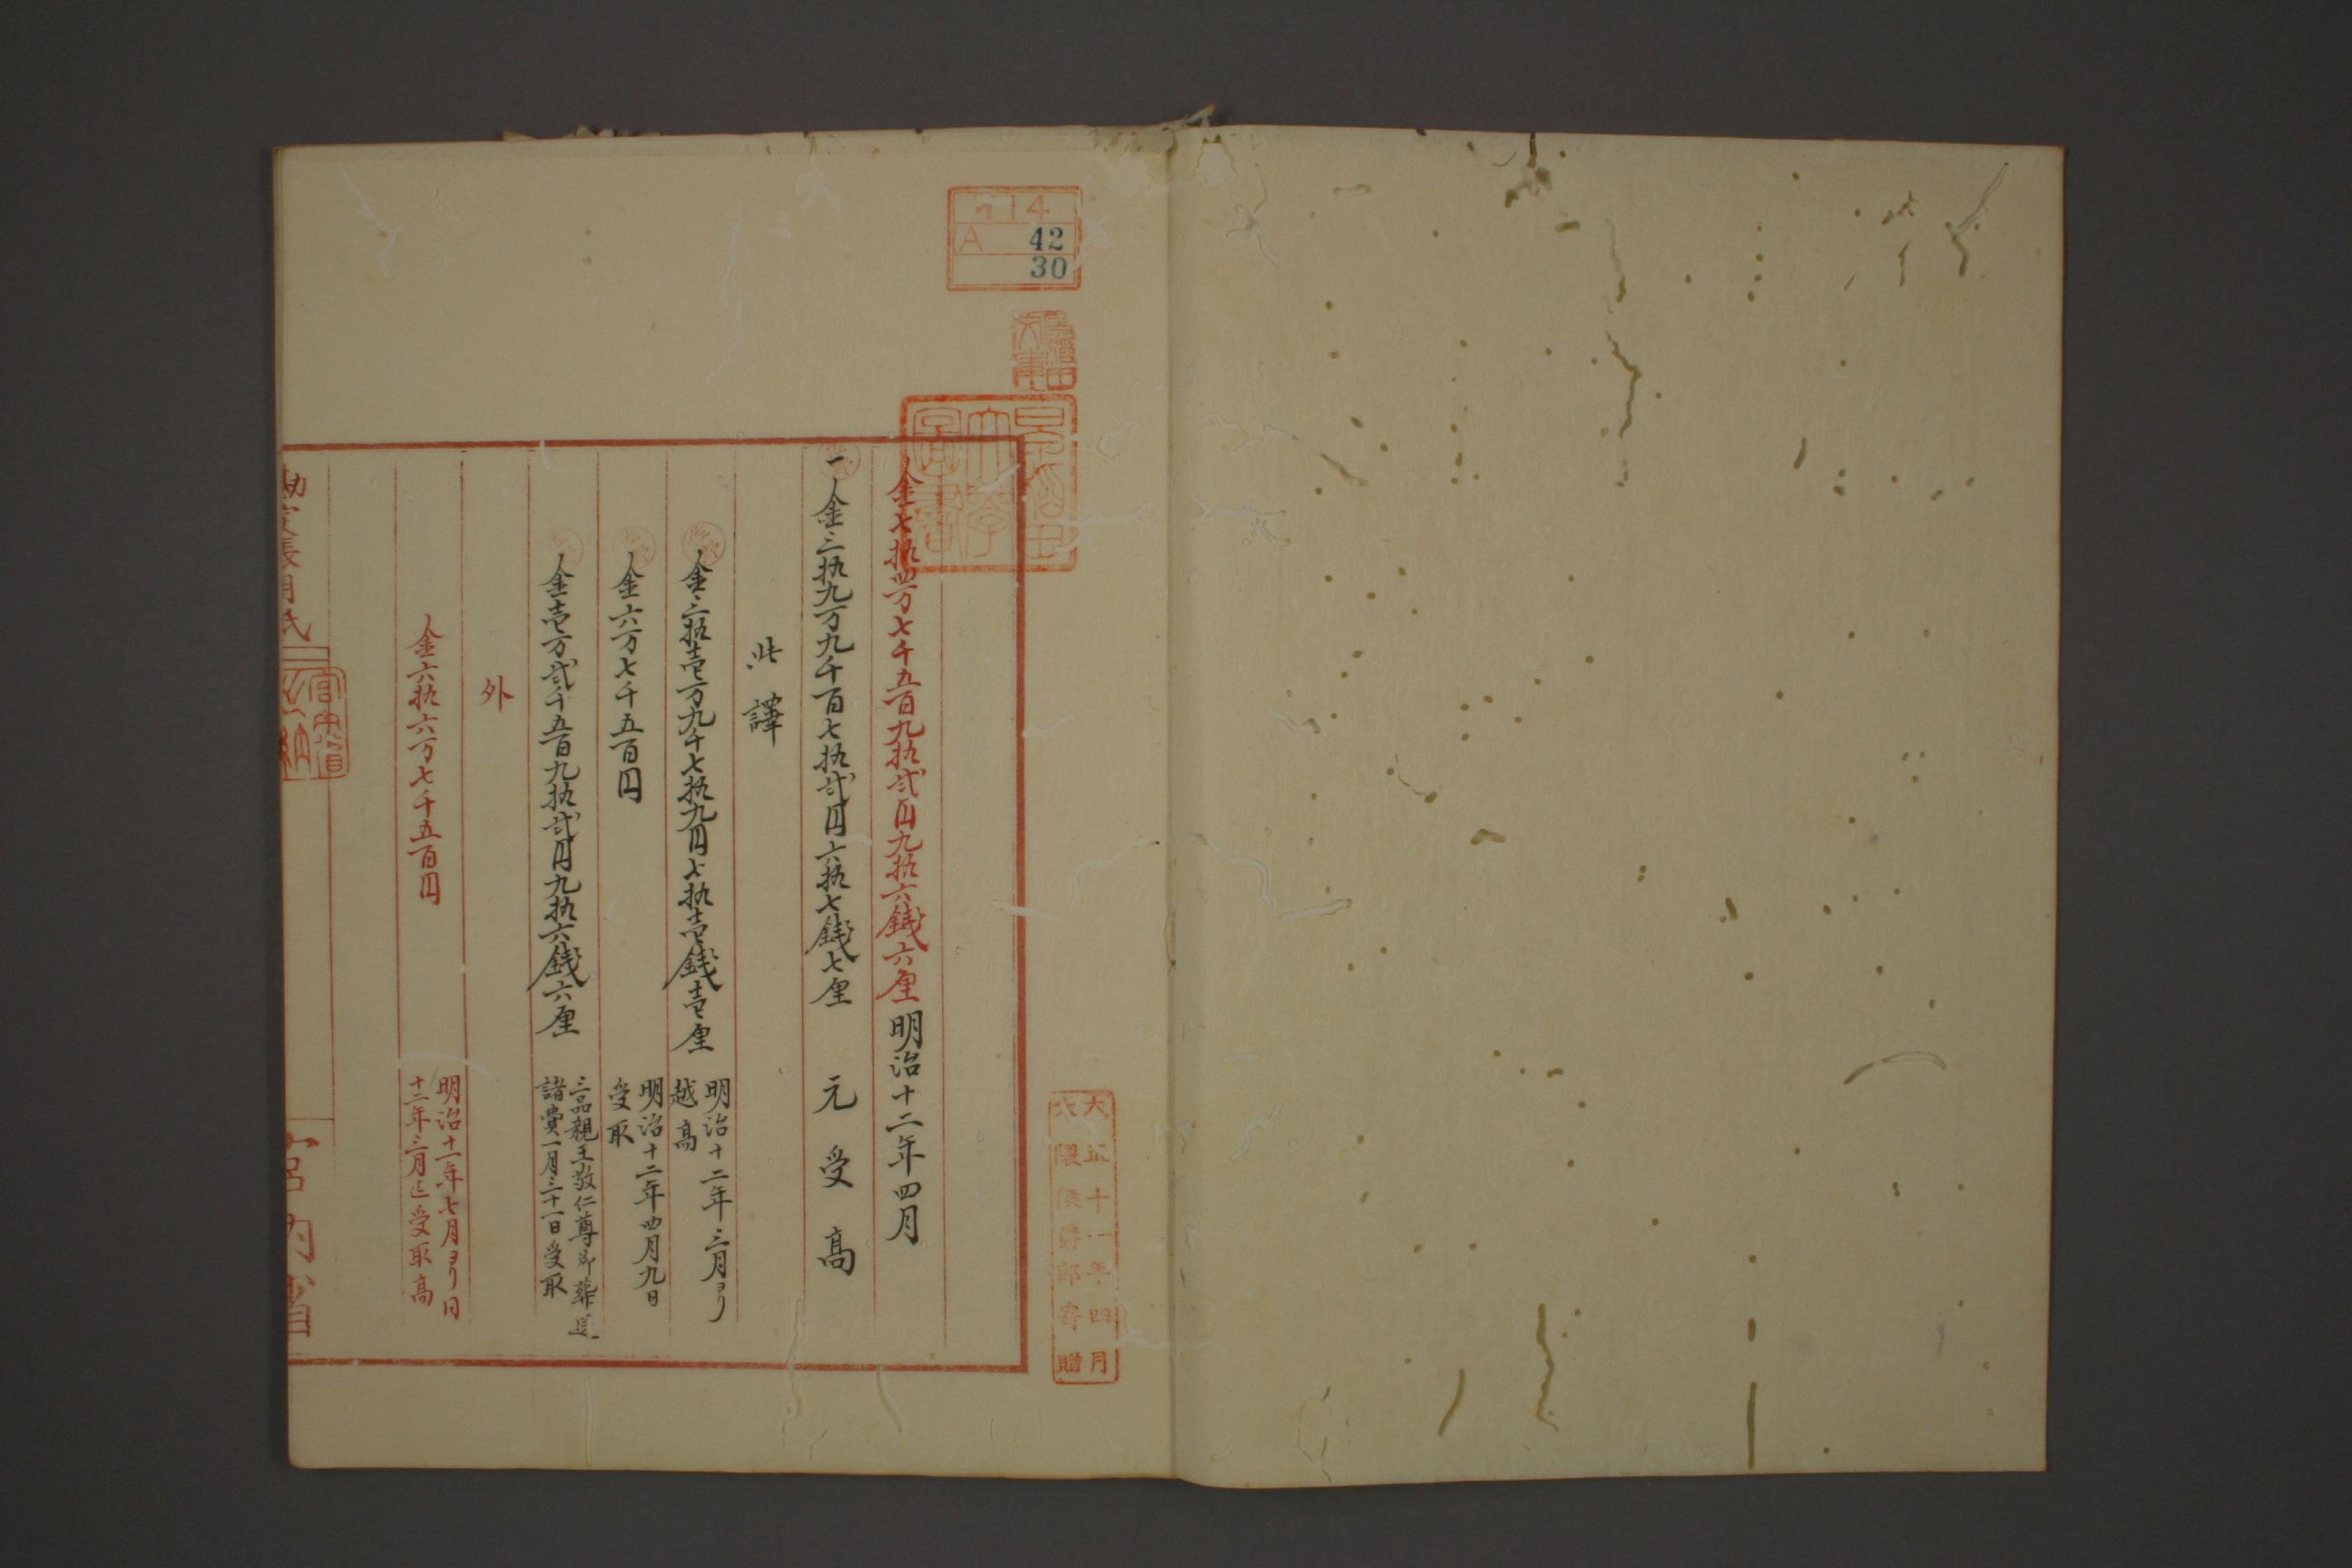 イ14
A 42
30
早稲田大學圖書
大正十一年四月
大隈侯爵邸寄贈
金七拾四万七千五百九拾弐円九拾六銭六厘 明治十二年四月
一 金三拾九万九千百七拾弐円六拾七銭七厘 元受高
此譯
金三拾壱万九千七拾九円七拾壱銭壱厘 明治十二年三月ヨリ
越高
金六万七千五百円 明治十二年四月九日
受取
金壱万弐千五百九拾弐円九拾六銭六厘 三品親王敬仁尊御葬送
諸費一月三十一日受取
外
金六拾六万七千五百円 明治十一年七月ヨリ同
十二年三月迄受取高
勘定帳用紙
宮内省出納
宮内省